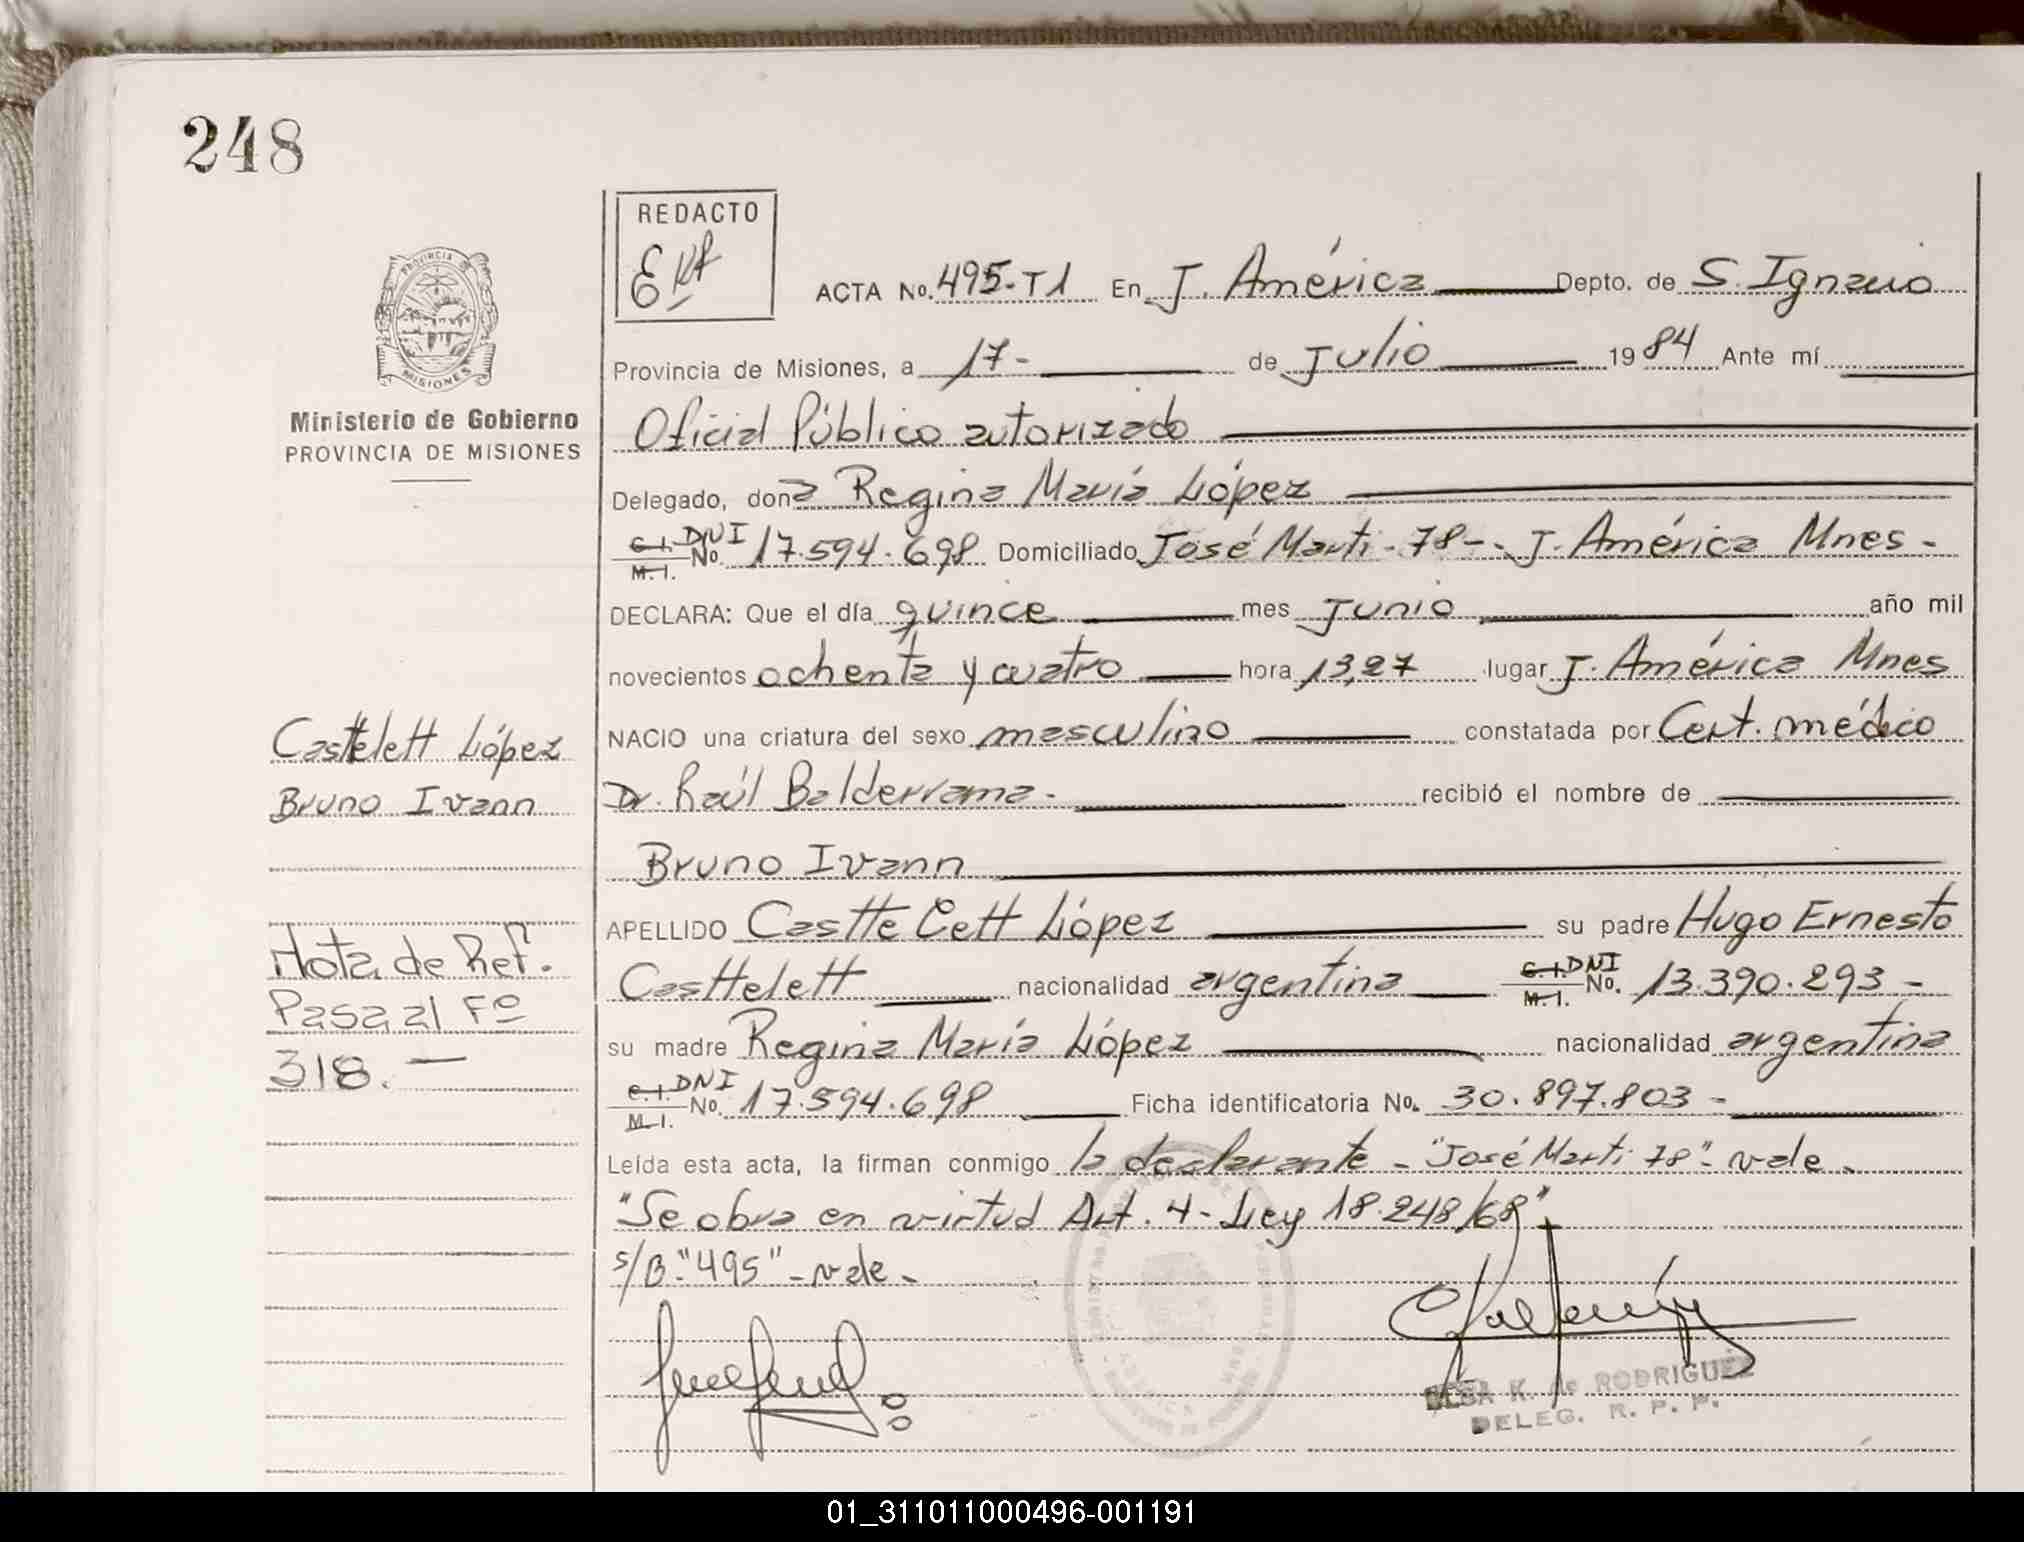 248
REDACTO
ACTA No. 495-T1 En J. América Depto. de S. Ignacio
PROVINCIA DE
MISIONES
Provincia de Misiones, a 17- de Julio 1984 Ante mí
Ministerio de Gobierno
PROVINCIA DE MISIONES
Oficial Público autorizado
Delegado, dona Regina María López
C.I. DNI
M.I. No. 17.594.698 Domiciliado José Marti - 78 -- J. América Mnes -
DECLARA: Que el día quince mes Junio año mil
novecientos ochenta y cuatro hora 13,27 lugar J. América Mnes
NACIO una criatura del sexo masculino constatada por Cert. médico
Dr. Raúl Balderrama - recibió el nombre de
Bruno Ivann
Casttelett López
Bruno Ivann
APELLIDO Castte Cett López su padre Hugo Ernesto
Casttelett nacionalidad argentina C.I. DNI M.I. No. 13.390.293 -
Nota de Ref.
Pasa al Fº
318. —
su madre Regina María López nacionalidad argentina
C.I. DNI
M.I. No. 17.594.698 Ficha identificatoria No. 30.897.803 -
Leída esta acta, la firman conmigo la declarante - "José Marti 78" - vale -
"Se obra en virtud Art. 4 - Ley 18.248/68"
s/B "495" - vale -
K. de RODRIGUEZ
DELEG. R. P. P.
01_311011000496-001191